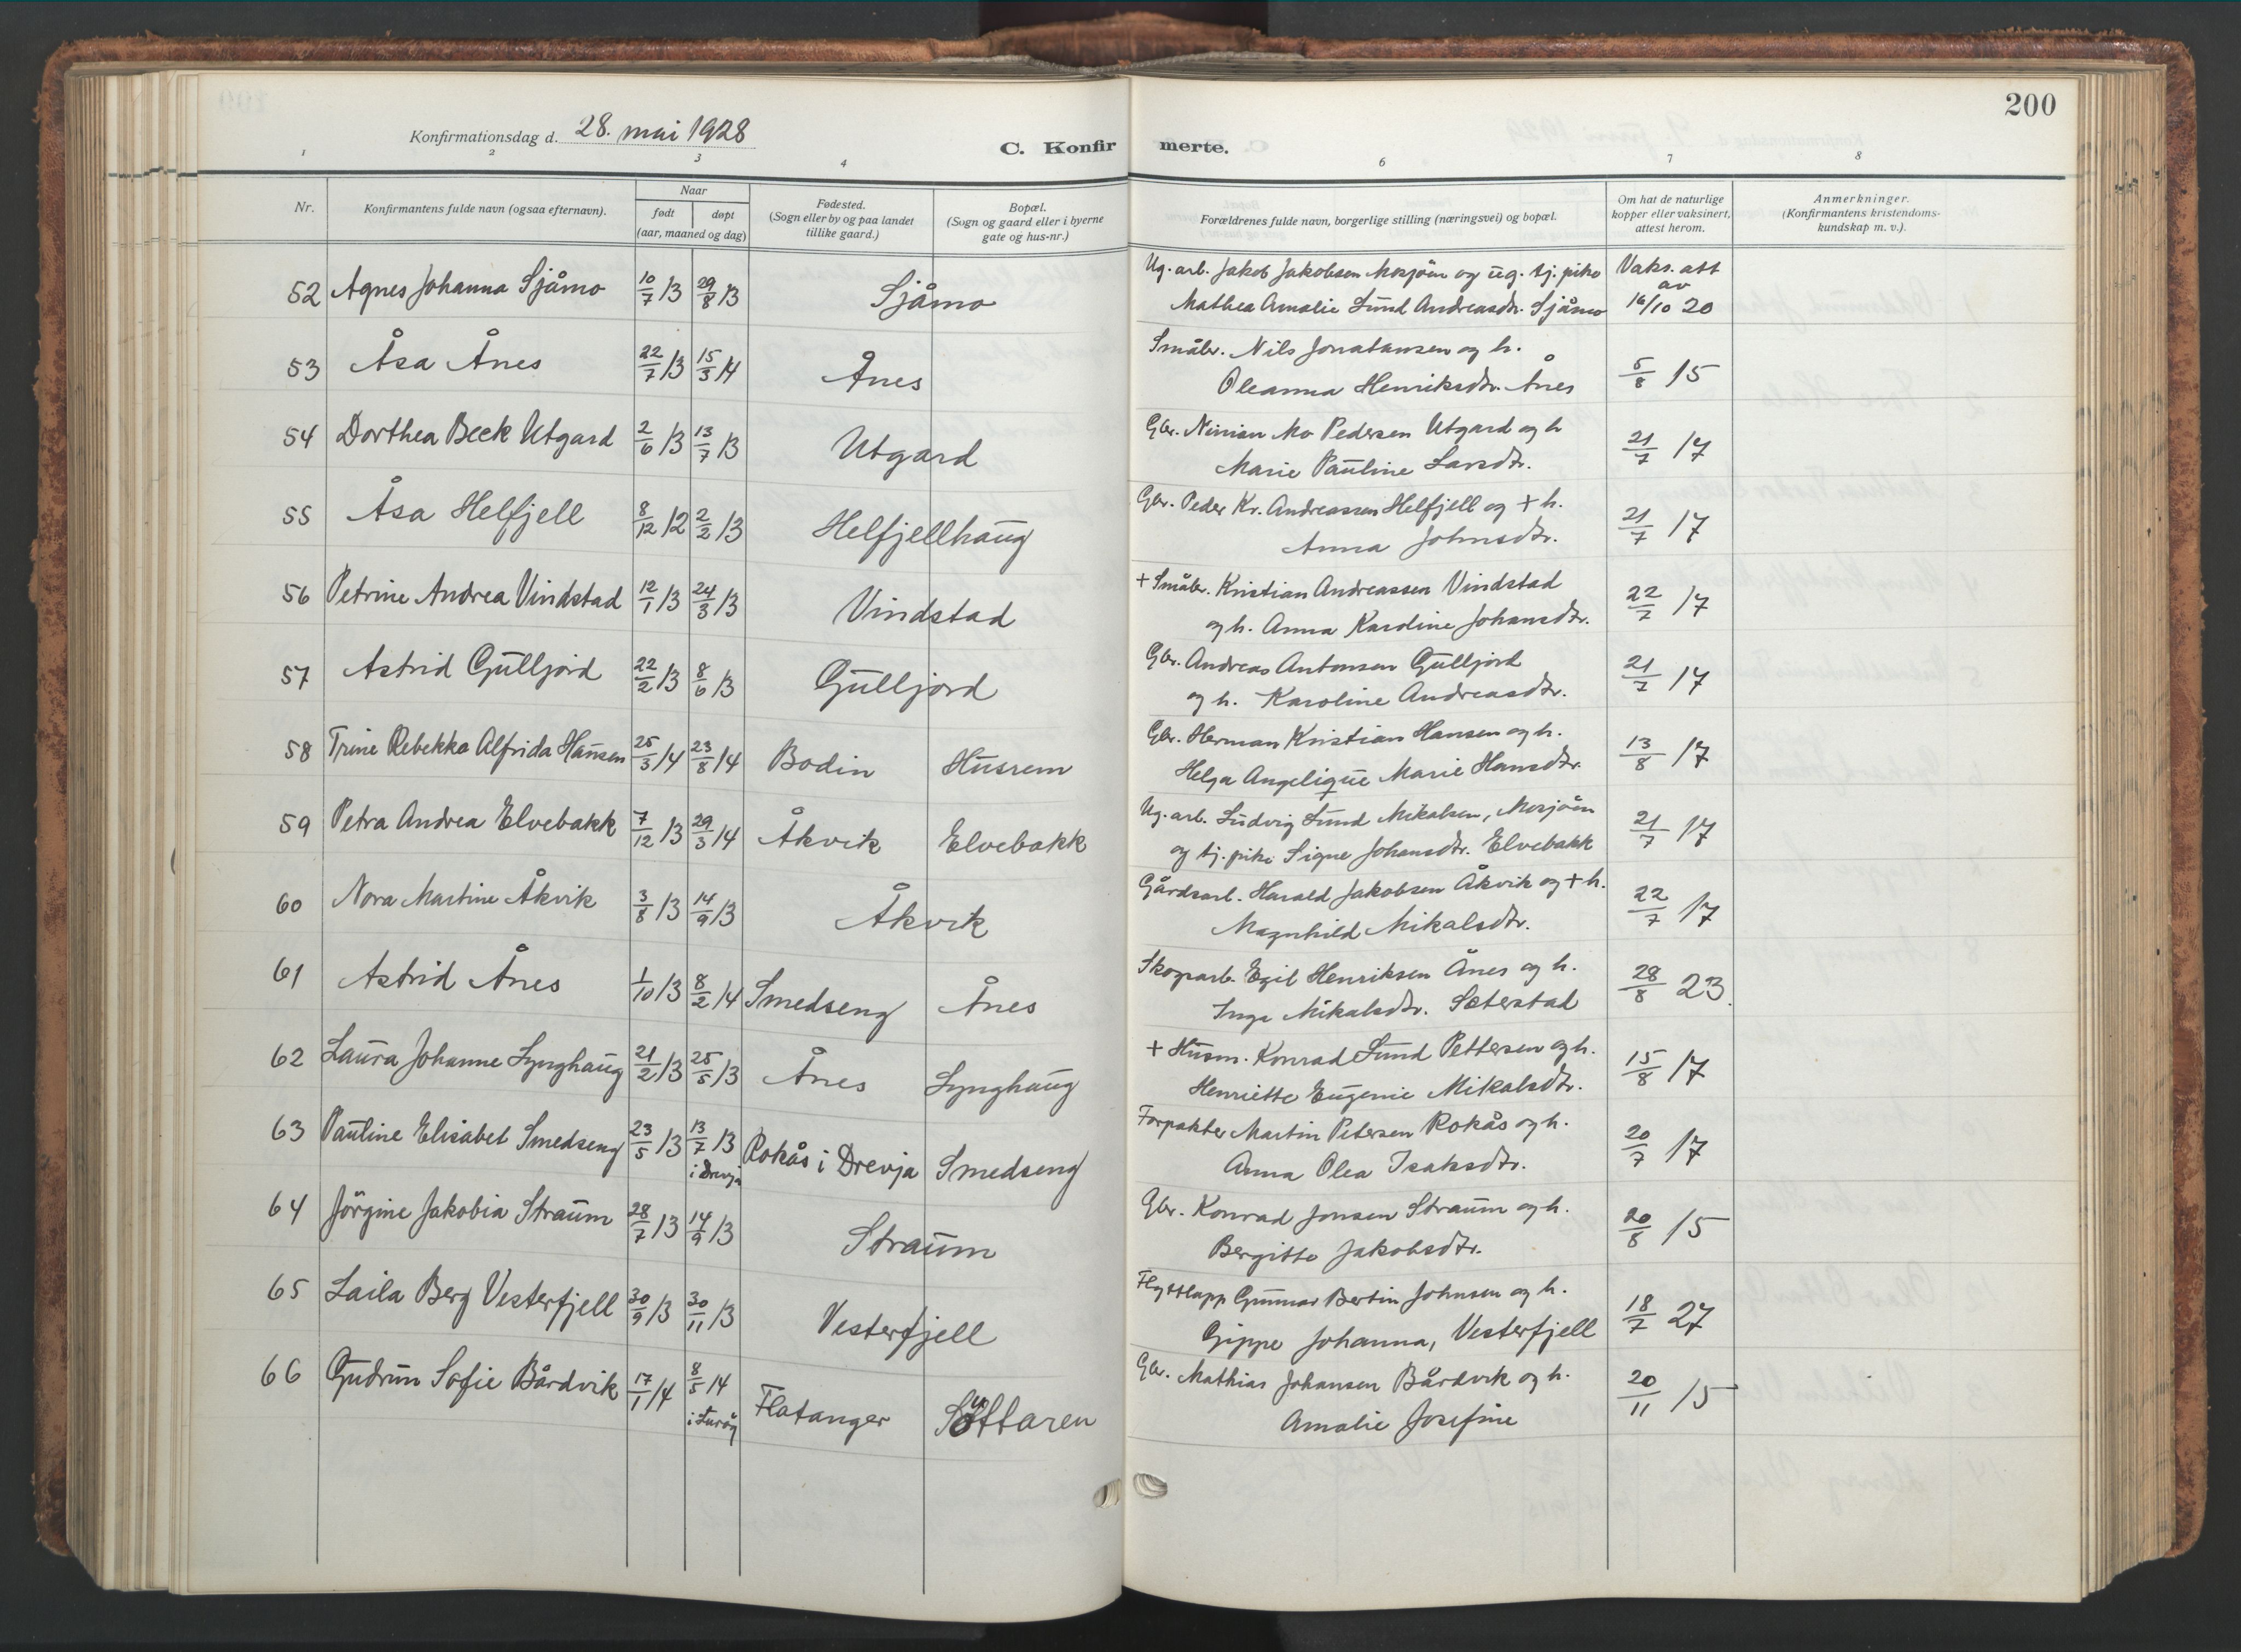 200
Konfirmationsdag d. 28. mai 1928
C. Konfirmerte.
1 2 3 4 6 7 8
Nr.
Konfirmantens fulde navn (ogsaa efternavn).
Naar
født døpt
(aar, maaned og dag)
Fødested.
(Sogn eller by og paa landet
tillike gaard.)
Bopæl.
(Sogn og gaard eller i byerne
gate og hus-nr.)
Forældrenes fulde navn, borgerlige stilling (næringsvei) og bopæl.
Om hat de naturlige
kopper eller vaksinert,
attest herom.
Anmerkninger.
(Konfirmantens kristendoms-
kundskap m. v.).
52 Agnes Johanna Sjåmo 10/7 13 29/8 13 Sjåmo
Ug. arb. Jakob Jakobsen Mosjöen og ug. tj. pike
Mathea Amalie Lund Andreasdtr. Sjåmo
Vaks. att
av
16/10 20
53 Åsa Ånes 22/7 13 15/3 14 Ånes
Småbr. Nils Jonatansen og h.
Oleanna Henriksdtr. Ånes
5/8 15
54 Dorthea Beck Utgard 2/6 13 13/7 13 Utgard
Gbr. Ninian Mo Pedersen Utgard og h
Marie Pauline Larsdtr.
21/7 17
55 Åsa Helfjell 8/12 12 2/2 13 Helfjellhaug
Gbr. Peder Kr. Andreassen Helfjell og + h.
Anna Johnsdtr.
21/7 17
56 Petrine Andrea Vindstad 12/1 13 24/3 13 Vindstad
+ Småbr. Kristian Andreassen Vindstad
og h. Anna Karoline Johansdtr.
22/7 17
57 Astrid Gulljord 22/2 13 8/6 13 Gulljord
Gbr. Andreas Antonsen Gulljord
og h. Karoline Andreasdtr.
21/7 17
58 Trine Rebekka Alfrida Hansen 25/3 14 23/8 14 Bodin Husrem
Gbr. Herman Kristian Hansen og h.
Helga Angelique Marie Hansdtr.
13/8 17
59 Petra Andrea Elvebakk 7/12 13 29/3 14 Åkvik Elvebakk
Ug. arb. Ludvig Lund Mikalsen, Mosjöen
og tj. pike Signe Johansdtr. Elvebakk
21/7 17
60 Nora Martine Åkvik 3/8 13 14/9 13 Åkvik
Gårdsarb. Harald Jakobsen Åkvik og + h.
Magnhild Mikalsdtr.
22/7 17
61 Astrid Ånes 1/10 13 8/2 14 Smedseng Ånes
Skogsarb. Egil Henriksen Ånes og h.
Inga Mikalsdtr. Sæterstad
28/8 23.
62 Laura Johanne Lynghaug 21/2 13 25/5 13 Ånes Lynghaug
+ Husm. Konrad Lund Pettersen og h.
Henriette Eugenie Mikalsdtr.
15/8 17
63 Pauline Elisabet Smedseng 23/5 13 13/7 13 i Drevja Rokås i Drevja Smedseng
Forpakter Martin Petersen Rokås og h.
Anna Olea Isaksdtr.
20/7 17
64 Jörgine Jakobia Straum 28/7 13 14/9 13 Straum
Gbr. Konrad Jonsen Straum og h.
Bergitte Jakobsdtr.
20/8 15
65 Laila Berg Vesterfjell 30/9 13 30/11 13 Vesterfjell
Flyttlapp Gunnar Bertin Johnsen og h.
Gippe Johanna, Vesterfjell
18/7 27
66 Gudrun Sofie Bårdvik 17/1 14 8/5 14 i Luröy Flatanger
Gbr. Mathias Johansen Bårdvik og h.
Amalie Josefine
20/11 15